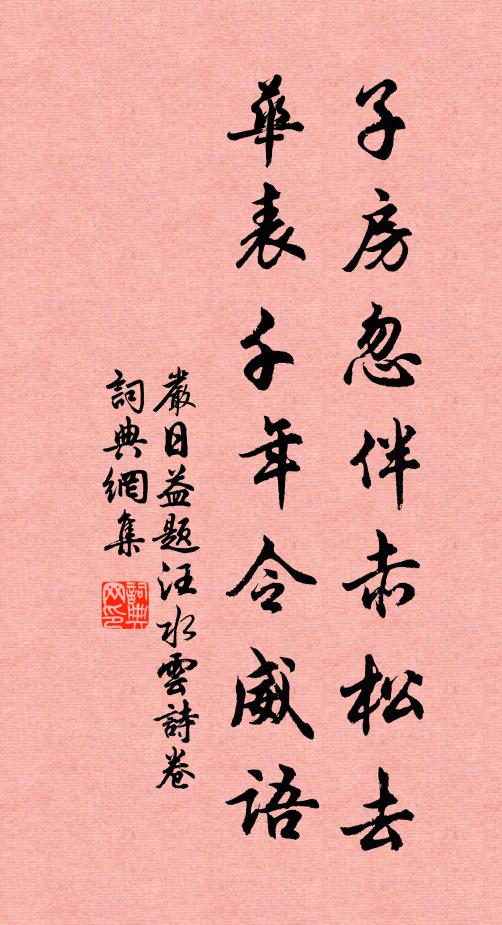 子房忽伴赤松去
華表千年令威語
嚴日益題汪水雲詩卷
詞典網集
詞典网印